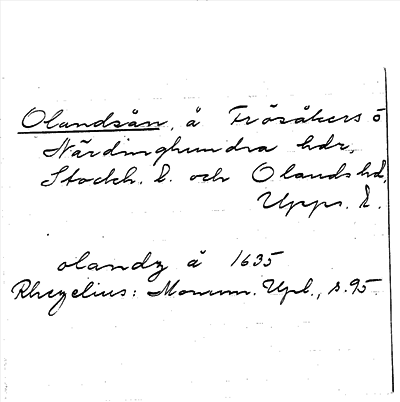 Olandsån, å Frösåkers o
Närdinghundra hdr,
Stockh. l. och Olands hd,
Upps. l.
olandz å 1635
Rhezelius: Monum. Upl., s. 95